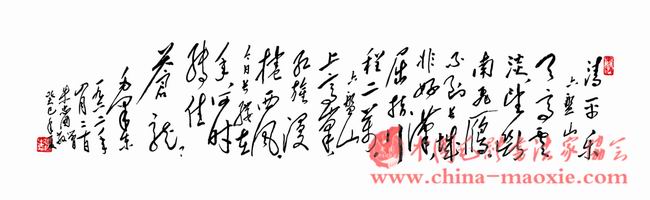 清平乐
六盘山
天高云
淡望断
南飞雁
不到长城
非好汉
屈指行
程二万
六盘山
上高峰
红旗漫
捲西风
今日长缨在
手何时
缚住
苍龙
毛泽东
一九六二年
癸巳年
书法家协会
www.china-maoxie.com